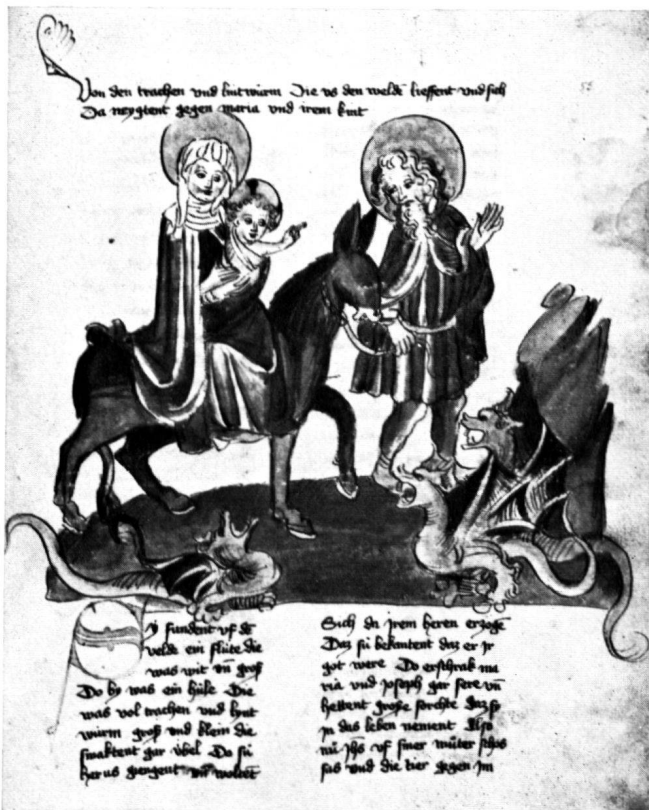 Von den trachen vnd lintwurm Die vs den weldē lieffent vnd sich
Da neygtent gegen maria vnd irem kint
Sy fundent vf dē
velde ein flůte die
was wit vn̄ groß
Do by was ein hüle Die
was vol trachen vnd lynt
würm groß vnd klein die
smaktent gar übel Do sü
her us giengent vn̄ woltēt
Sich da jrem heren erzogē
Daz sü bekantent daz er jr
got were Do erschrak ma
ria vnd joseph gar sere vn̄
hettent große forchte daz sü
jn das leben nement Also
nü jhs vf siner müter schos
sas vnd die tier gegen jm